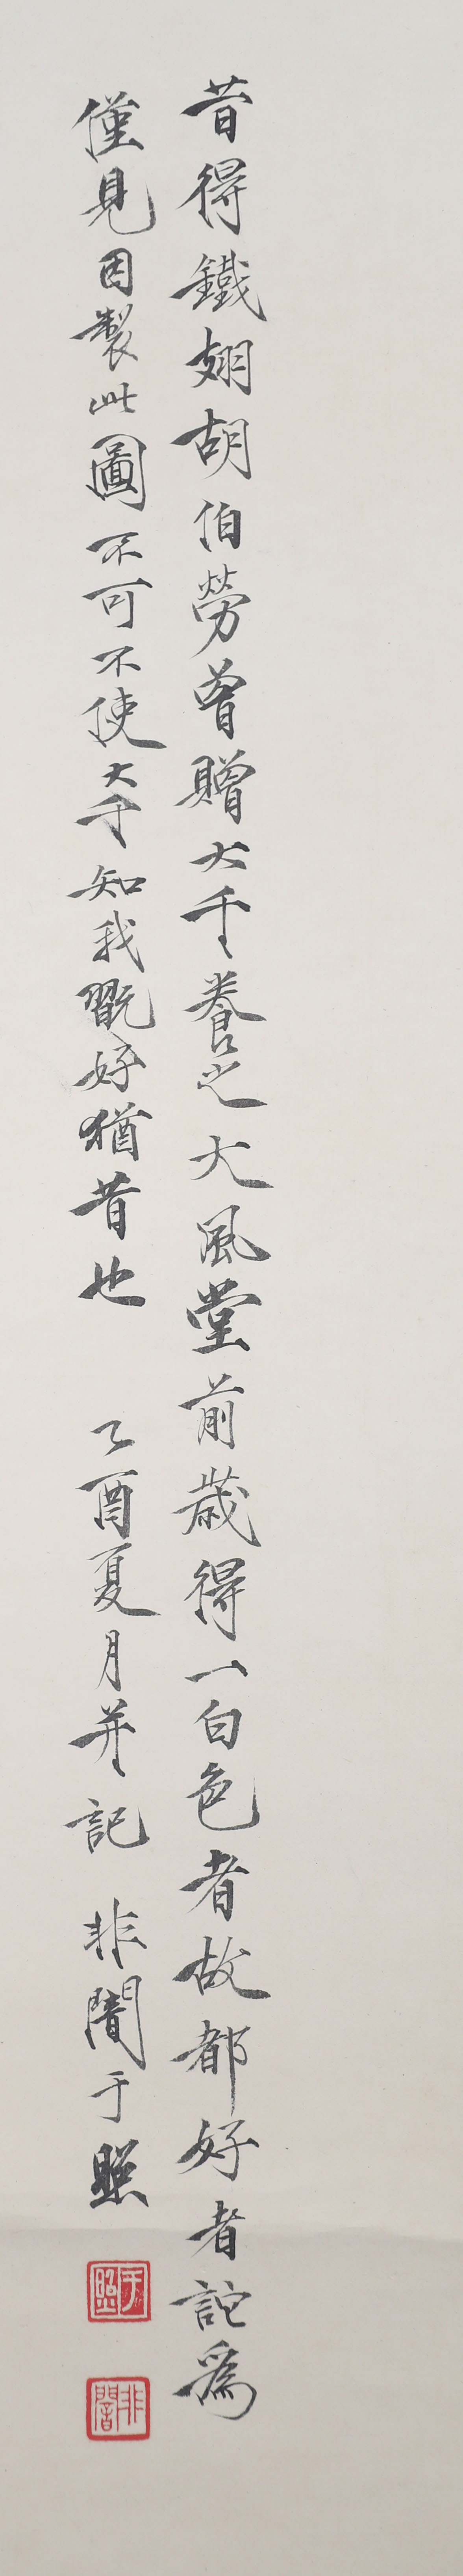 昔得鐵翅胡伯勞曾贈大千養之大風堂前歲得一白色者故都好者詫為
僅見因製此圖不可不使大千知我翫好猶昔也 乙酉夏月并記 非闇于照
于照
非闇